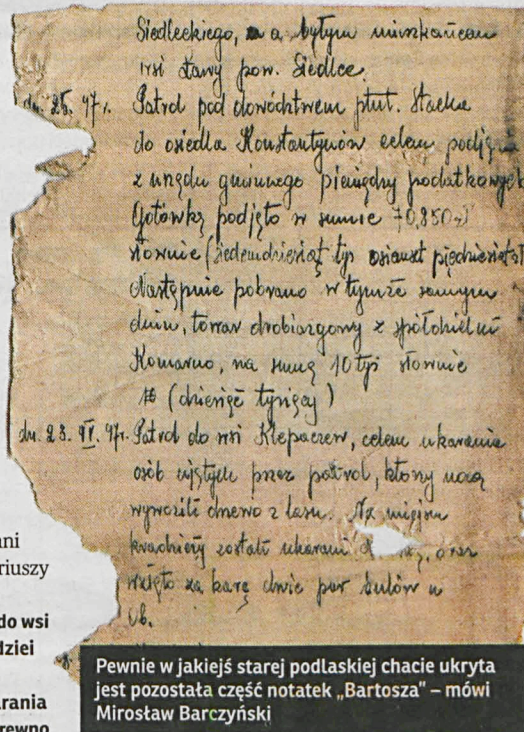 Siedleckiego, a byłym mieszkańcem
wsi Ławy pow. Siedlce.
dn. 25. 47r. Patrol pod dowództwem plut. Stacha
do osiedla Konstantynów celem podjęcia
z urzędu gminnego pieniędzy podatkowych
Gotówkę podjęto w sumie 70,850 zł
słownie (siedemdziesiąt tys osiemset pięćdziesiąt)
Następnie pobrano w tymże samym
dniu, towar drobiazgowy z spółdzielni
Komarno, na sumę 10 tyś słownie
(dziesięć tysięcy)
dn. 23. VI. 47r. Patrol do wsi Klepaczew, celem ukarania
osób ujętych przez patrol, który nocą
wywozili drzewo z lasu. Na miejscu
kradzieży zostali ukarani oraz
wzięto za karę dwie par butów u
Ob.
ani
riuszy
do wsi
dziei
rania
rewno
Pewnie w jakiejś starej podlaskiej chacie ukryta
jest pozostała część notatek „Bartosza” – mówi
Mirosław Barczyński